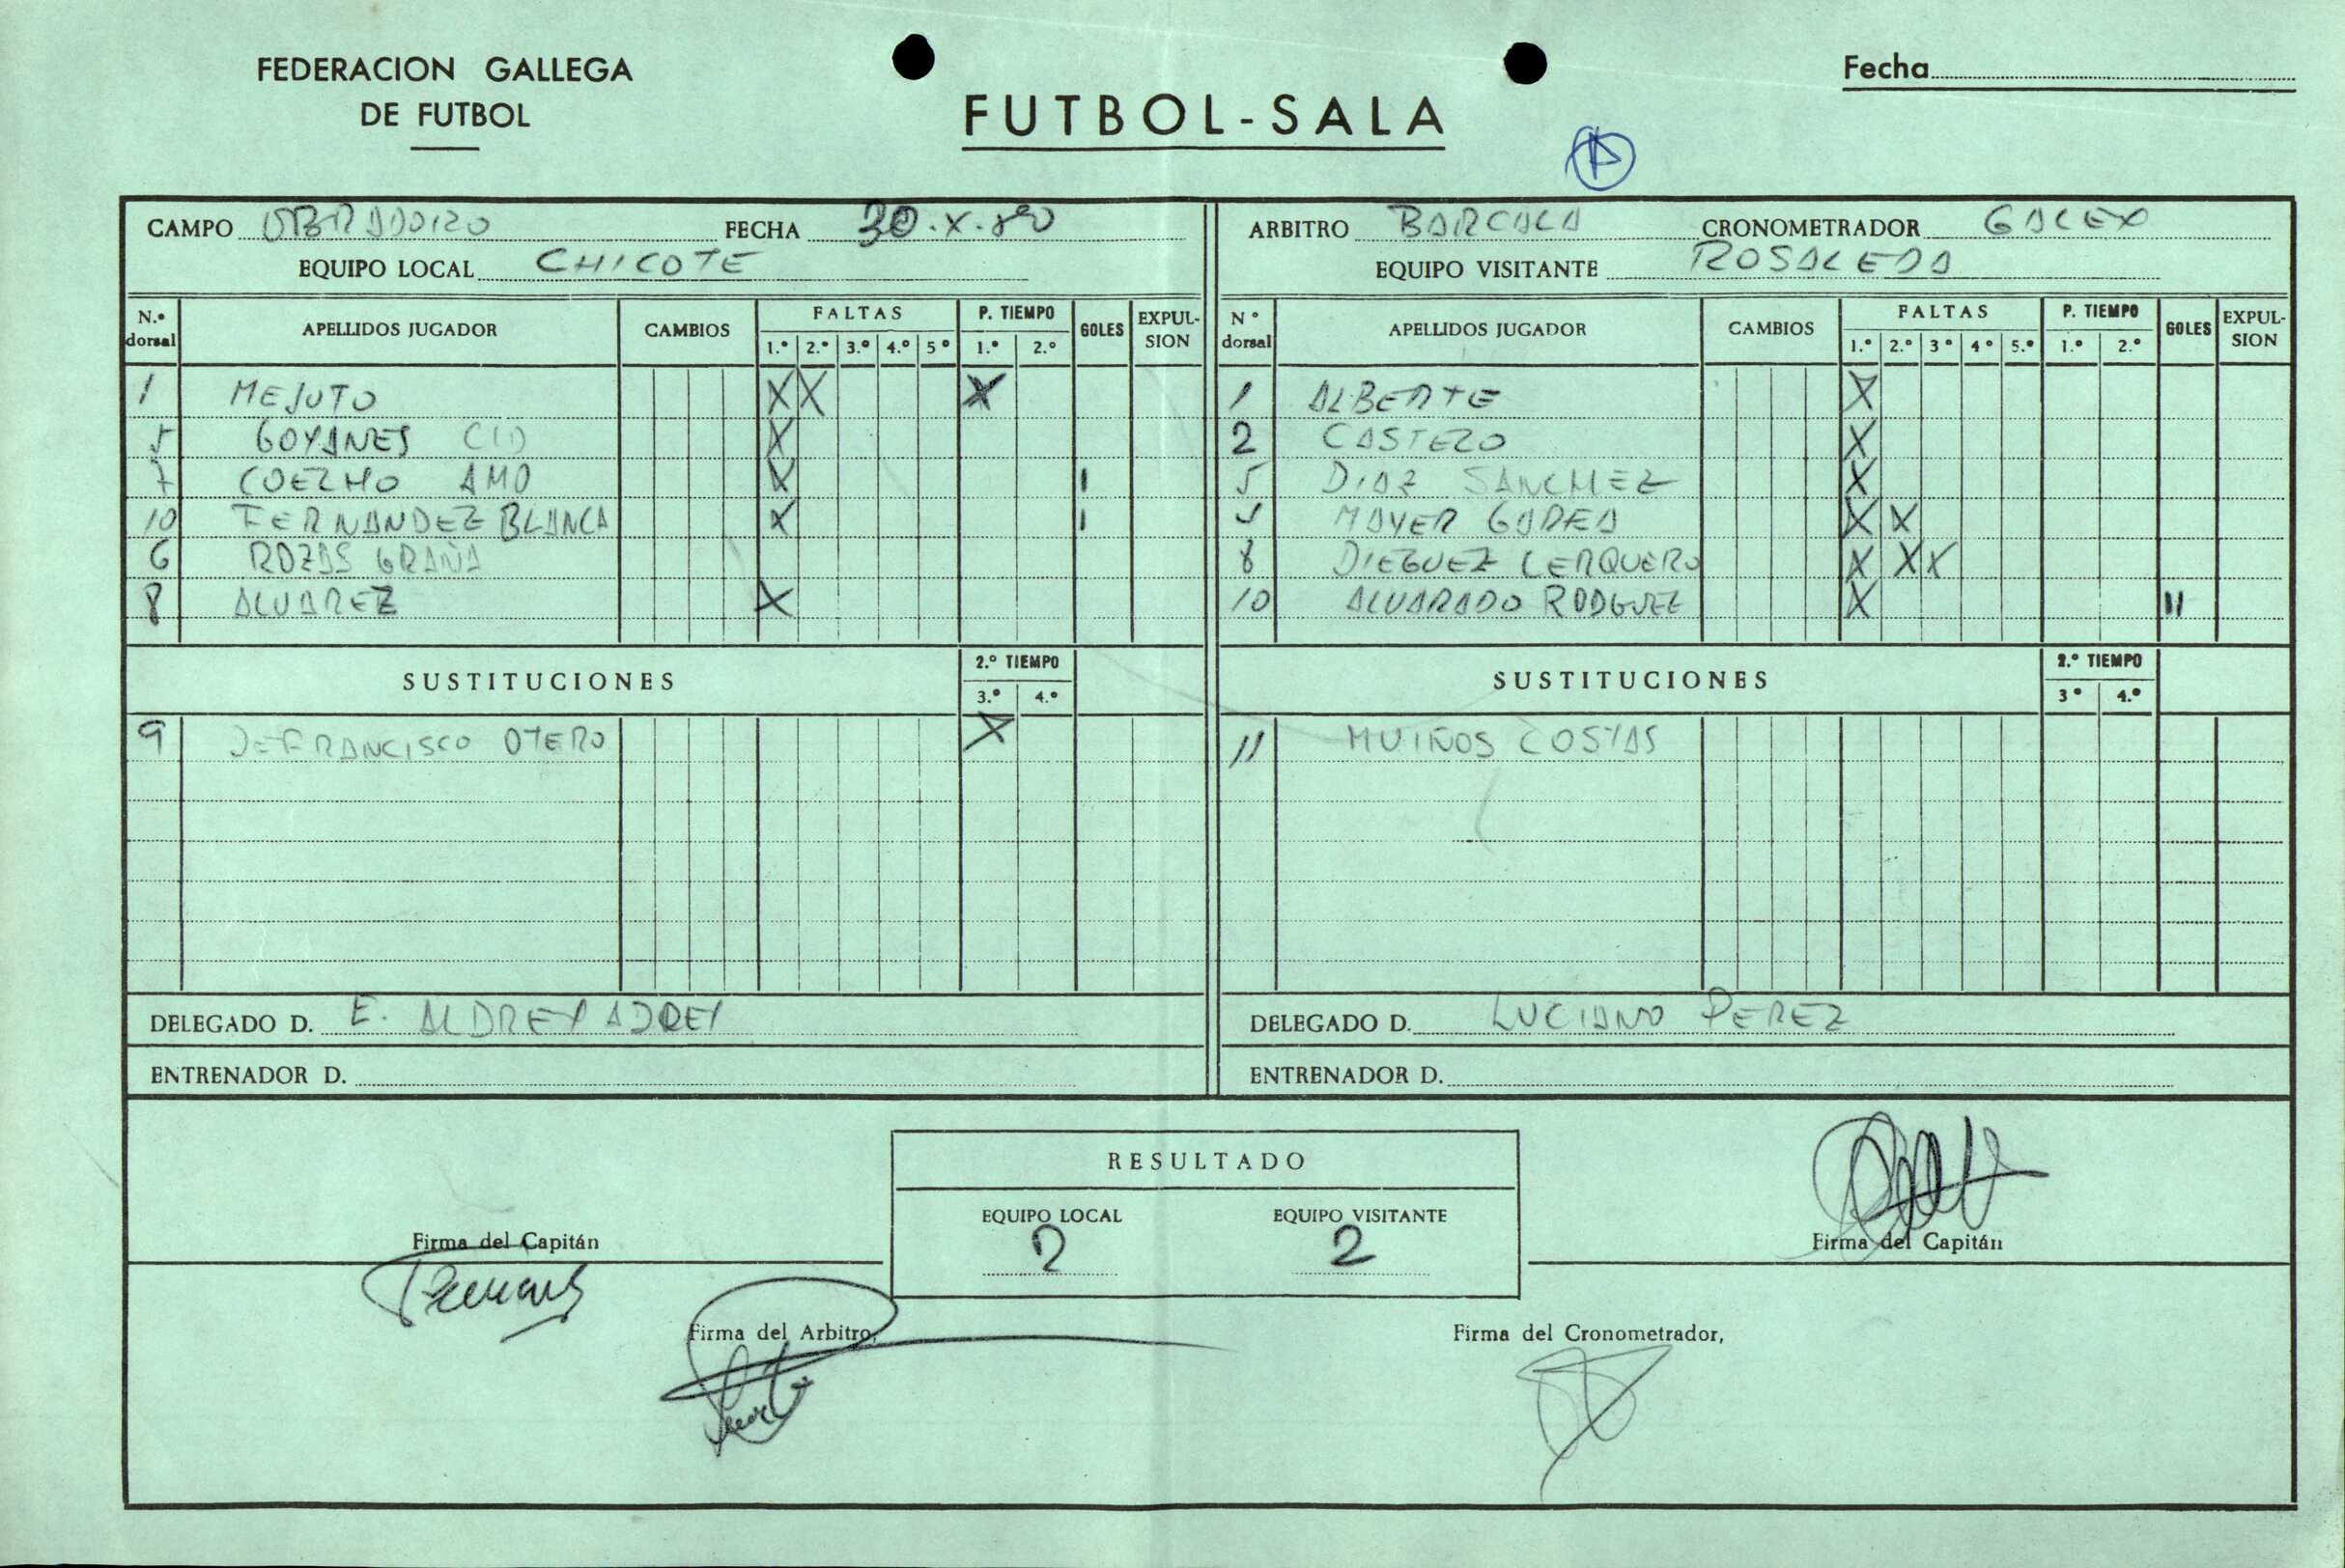 FEDERACION GALLEGA
DE FUTBOL
FUTBOL-SALA
Fecha
CAMPO OBRADOIRO FECHA 30.X.80
EQUIPO LOCAL CHICOTE
ARBITRO BARCALA CRONOMETRADOR GALEX
EQUIPO VISITANTE ROSALEDA
N.º dorsal APELLIDOS JUGADOR CAMBIOS FALTAS 1.º 2.º 3.º 4.º 5º P. TIEMPO 1.º 2.º GOLES EXPUL-SION
1 MEJUTO X X X
5 GOYANES CID X
7 COELHO AMO X I
10 FERNANDEZ BLANCA X I
6 ROZAS GRAÑA
8 ALVAREZ X
SUSTITUCIONES 2.º TIEMPO 3.º 4.º
9 DEFRANCISCO OTERO X
DELEGADO D. E. ALDREY
ENTRENADOR D.
Nº dorsal APELLIDOS JUGADOR CAMBIOS FALTAS 1.º 2.º 3º 4º 5.º P. TIEMPO 1.º 2.º GOLES EXPUL-SION
1 ALBERTE X
2 CASTELO X
5 DIAZ SANCHEZ X
MAYER GADEA X X
8 DIEGUEZ CERQUERO X X X
10 ALVARADO RODGUEZ X II
SUSTITUCIONES 2.º TIEMPO 3º 4.º
11 MUIÑOS COSTAS
DELEGADO D. LUCIANO PEREZ
ENTRENADOR D.
RESULTADO
EQUIPO LOCAL EQUIPO VISITANTE
2 2
Firma del Capitán
Firma del Capitán
Firma del Arbitro,
Firma del Cronometrador,